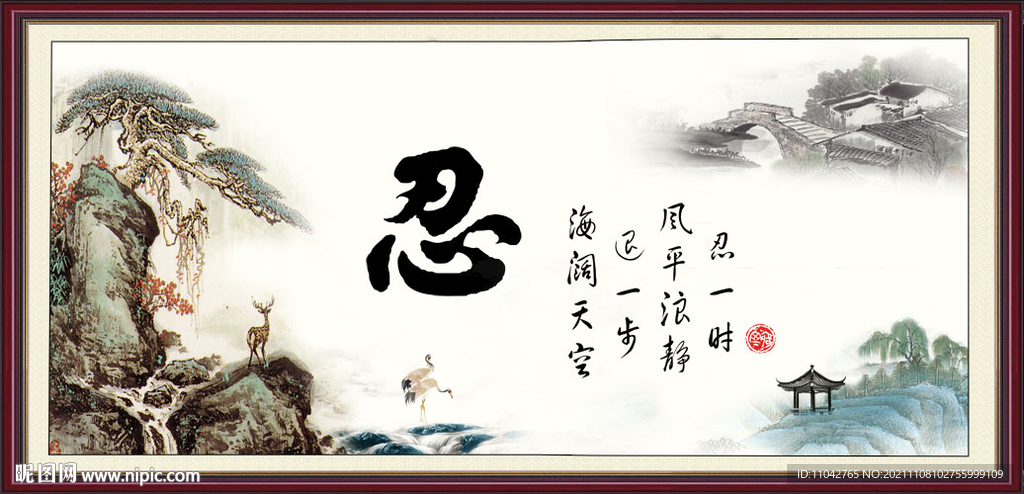 忍
忍一时
风平浪静
退一步
海阔天空
昵图网 www.nipic.com
ID:11042765 NO:20211108102755999109